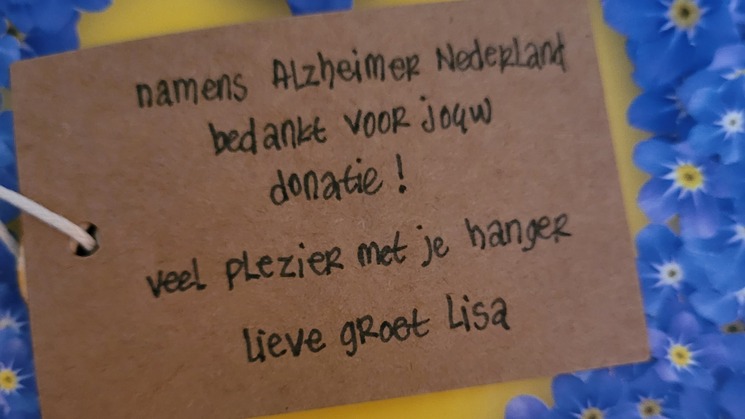 namens Alzheimer Nederland
bedankt voor jouw
donatie!
veel plezier met je hanger
lieve groet Lisa